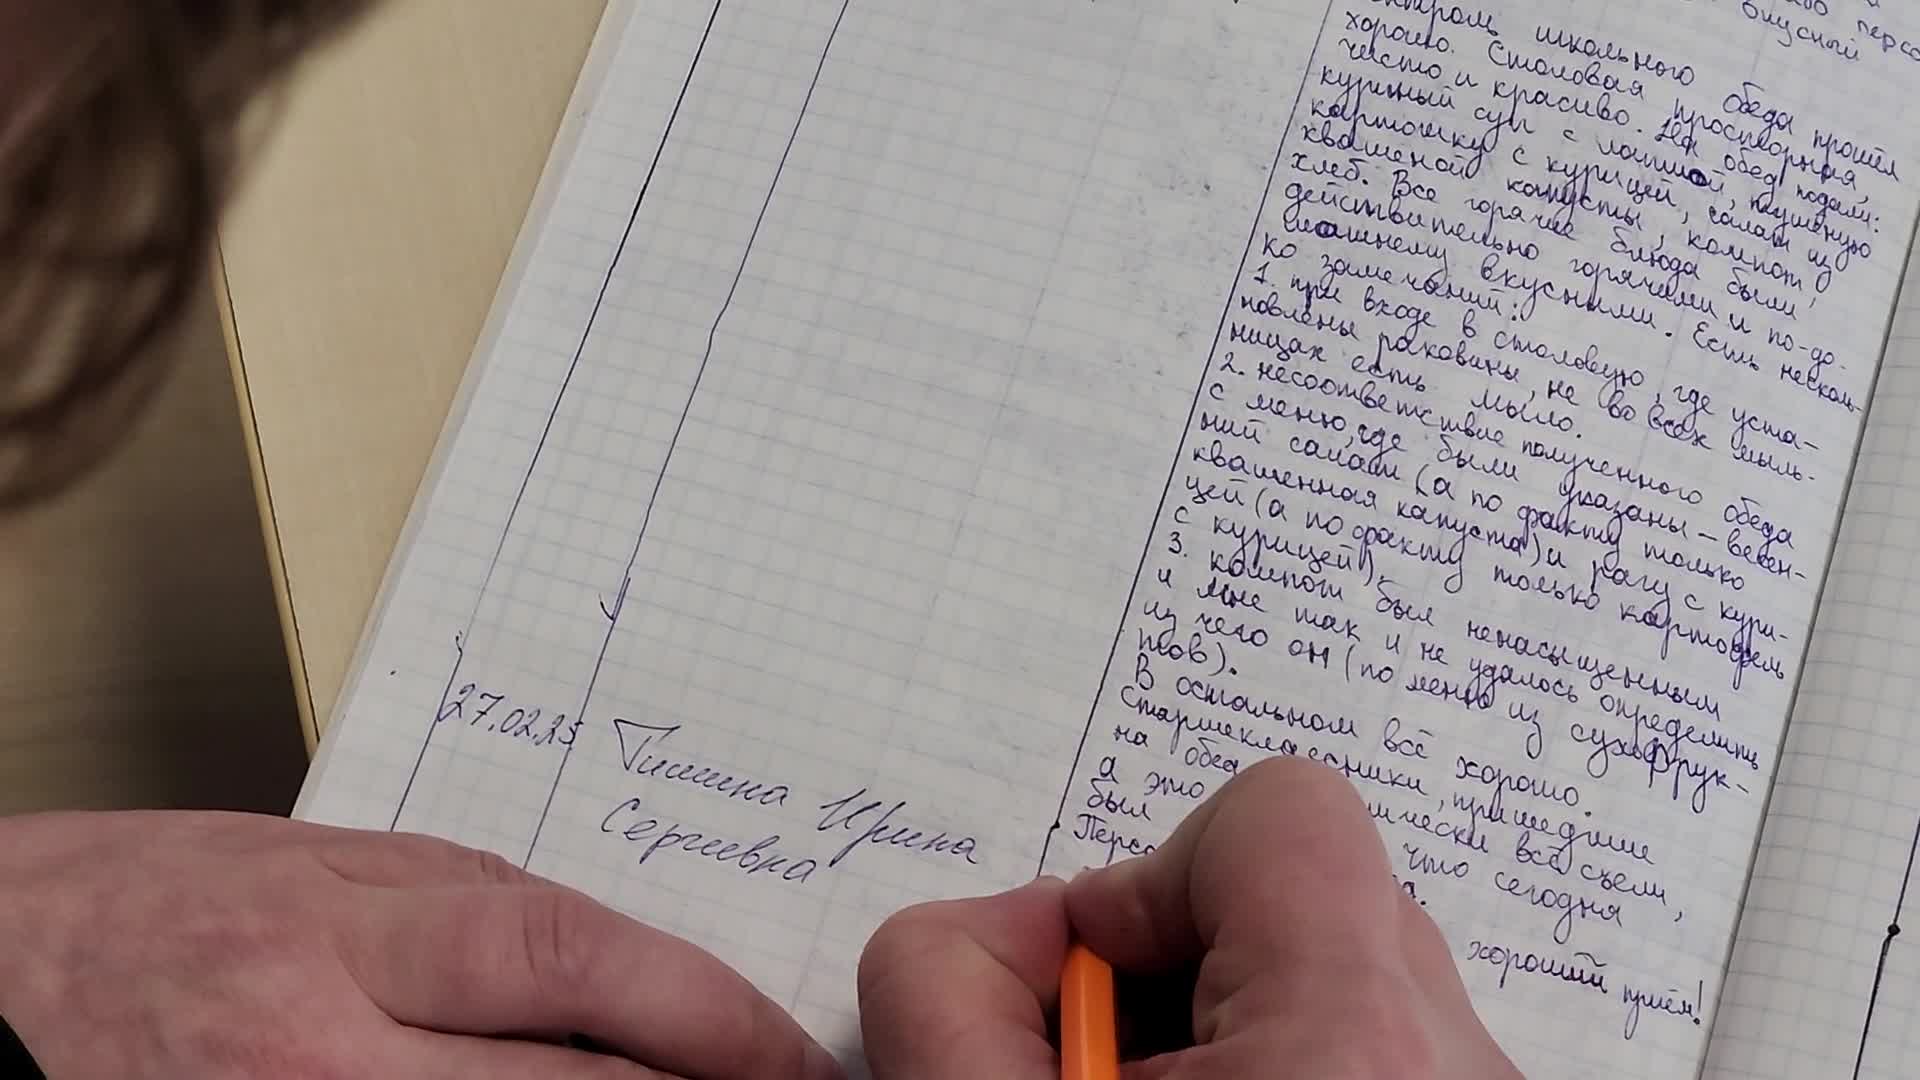 або персо
вкусный
контроль школьного обеда прошёл
хорошо. Столовая просторная,
чисто и красиво. На обед подали:
куриный суп с лапшой, тушеную
картошку с курицей, салат из
квашеной капусты, компот и
хлеб. Все горячие блюда были
действительно горячими и по-до-
машнему вкусными. Есть несколь-
ко замечаний:
1. при входе в столовую, где уста-
новлены раковины, не во всех мыль-
ницах есть мыло.
2. несоответствие полученного обеда
с меню, где были указаны – весен-
ний салат (а по факту только
квашенная капуста) и рагу с кури-
цей (а по факту только картофель
с курицей).
3. компот был ненасыщенным
и мне так и не удалось определить
из чего он (по меню из сухофрук-
тов).
В остальном всё хорошо.
Старшеклассники, пришедшие
на обед
всё съели,
а это
что сегодня
был
Персо
хороший приём!
27.02.25
Тишина Ирина
Сергеевна